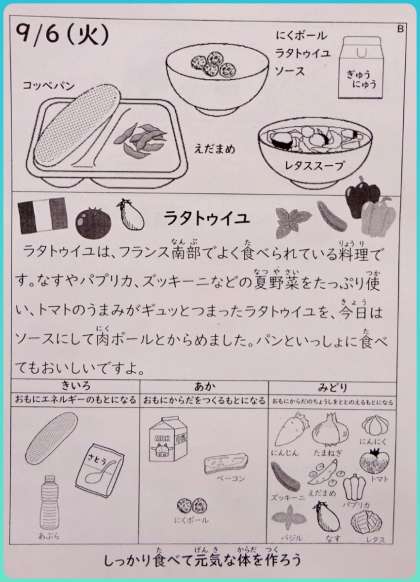 9/6(火)
B
にくボール
ラタトゥイユ
ソース
ぎゅう
にゅう
コッペパン
えだまめ
レタススープ
ラタトゥイユ
ラタトゥイユは、フランス南部でよく食べられている料理で
す。なすやパプリカ、ズッキーニなどの夏野菜をたっぷり使
い、トマトのうまみがギュッとつまったラタトゥイユを、今日は
ソースにして肉ボールとからめました。パンといっしょに食べ
てもおいしいですよ。
きいろ
おもにエネルギーのもとになる
あか
おもにからだをつくるもとになる
みどり
おもにからだのちょうしをととのえるもとになる
さとう
あぶら
MILK
ベーコン
にくボール
にんじん
たまねぎ
にんにく
ズッキーニ
えだまめ
パプリカ
トマト
バジル
なす
レタス
しっかり食べて元気な体を作ろう